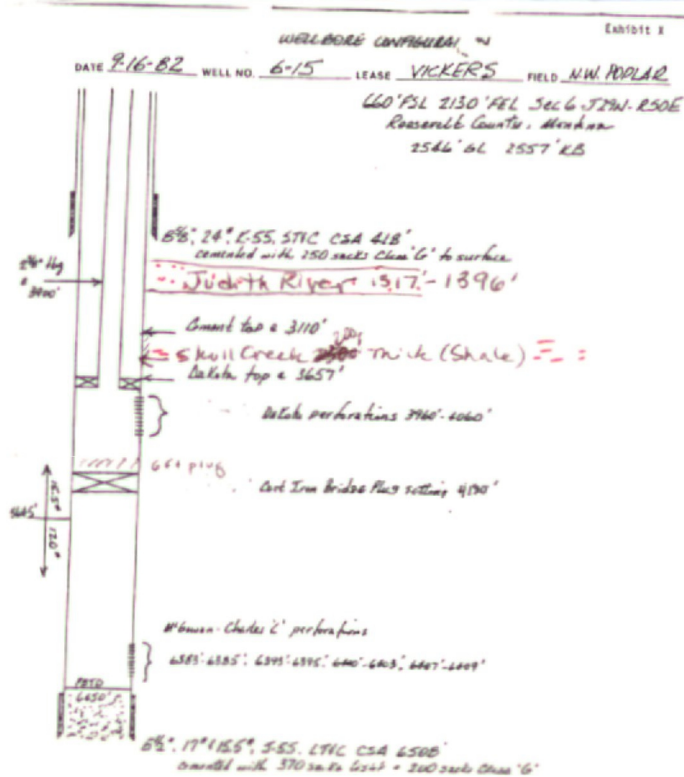 Exhibit X
WELLBORE CONFIGURATION
DATE 9-16-82 WELL NO. 6-15 LEASE VICKERS FIELD N.W. POPLAR
660' FSL 2130' FEL Sec 6-T29N-R50E
Roosevelt County, Montana
2546' GL 2557' KB
8⅝", 24#, K-55, ST&C CSA 418'
cemented with 250 sacks Class "G" to surface
Judith River 1317'-1396'
@ 3900'
Cement top @ 3110'
200'
Skull Creek Thick (Shale)
Dakota top @ 3657'
Dakota perforations 3960'-4060'
plug
Cast Iron Bridge Plug setting 4190'
McGowan-Charles "C" perforations
6383'-6385', 6393'-6395', 6400'-6403', 6407'-6409'
PBTD
6450'
5½", 17# & 15.5#, J-55, LT&C CSA 6508'
cemented with 370 sacks Light + 200 sacks Class "G"